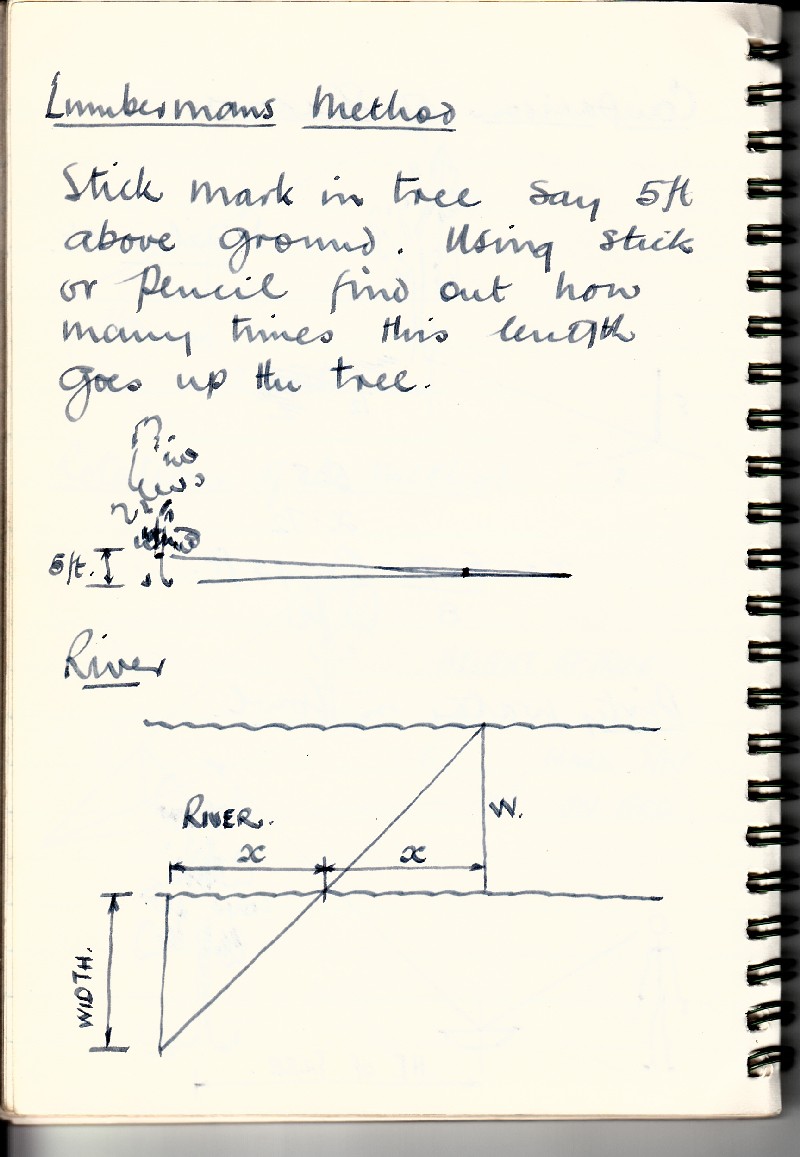 Lumbermans Method
Stick mark in tree say 5ft
above ground. Using stick
or pencil find out how
many times this length
goes up the tree.
5ft.
River
RIVER.
W.
x x
WIDTH.